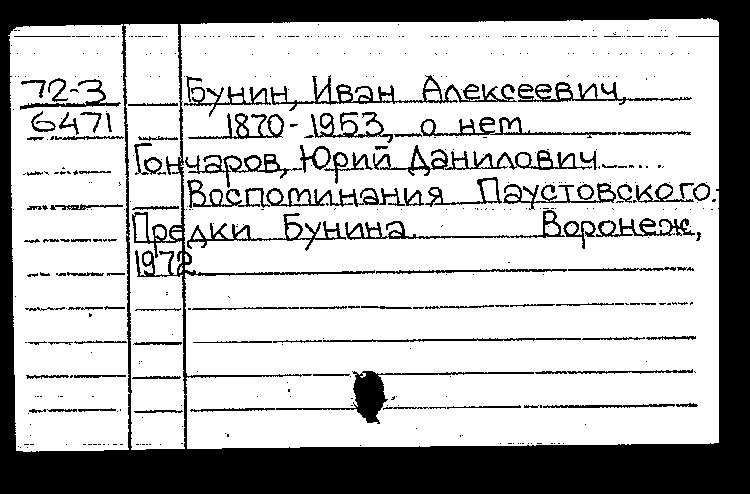 72-3 Бунин, Иван Алексеевич,
6471 1870-1953, о нем
Гончаров, Юрий Данилович
Воспоминания Паустовского.
Предки Бунина. Воронеж,
1972